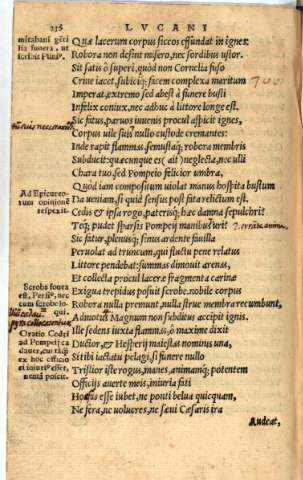 236 LVCANI
Quæ lacerum corpus siccos effundat in ignes:
Robora non desint misero, nec sordibus ustor.
Sit satis ô superi, quod non Cornelia fuso
Crine iacet, subiciq; facem complexa maritum
Imperat, extremo sed abest à funere busti
Infelix coniux, nec adhuc à littore longe est.
Sic fatus, paruos iuuenis procul aspicit ignes,
Corpus uile suis nullo custode cremantes:
Inde rapit flammas, semustaq; robora membris
Subducit: quæcunque es (ait) neglecta, nec ulli
Chara tuo, sed Pompeio felicior umbra,
Quòd iam compositum uiolat manus hospita bustum
Da ueniam, si quid sensus post fata relictum est.
Cedis & ipsa rogo, paterisq; hæc damna sepulchri
Teq; pudet sparsis Pompeij manibus
Sic fatur, plenusq; sinus ardente fauilla
Peruolat ad truncum, qui fluctu pene relatus
Littore pendebat: summas dimouit arenas,
Et collecta procul laceræ fragmenta carinæ
Exigua trepidus posuit scrobe. nobile corpus
Robora nulla premunt, nulla strue membra recumbunt,
Admotus Magnum non subditus accipit ignis.
Ille sedens iuxta flammas, ô maxime dixit
Ductor, & Hesperij maiestas nominis una,
Si tibi iactatu pelagi, si funere nullo
Tristior iste rogus, manes, animamq; potentem
Officijs auerte meis, iniuria fati
Hoc fas esse iubet, ne ponti belua quicquam,
Ne fera, ne uolucres, ne sæui Cæsaris ira
Audeat,
Ad Epicureo-
rum opinionē
respexit.
Scrobs
est,
Oratio Cordi
ad Pompeij ca
dauer,
ex hoc officio